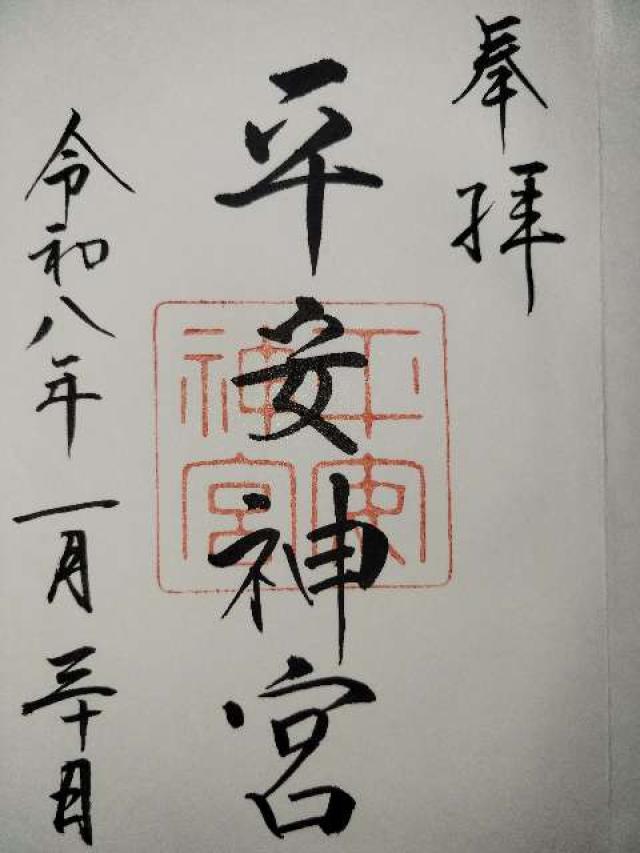 奉拝
平安神宮
平安神宮
令和八年一月三十日